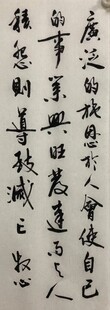 廣泛的施恩於人會使自己
的事業興旺發達而與人
積怨則導致滅亡 牧心